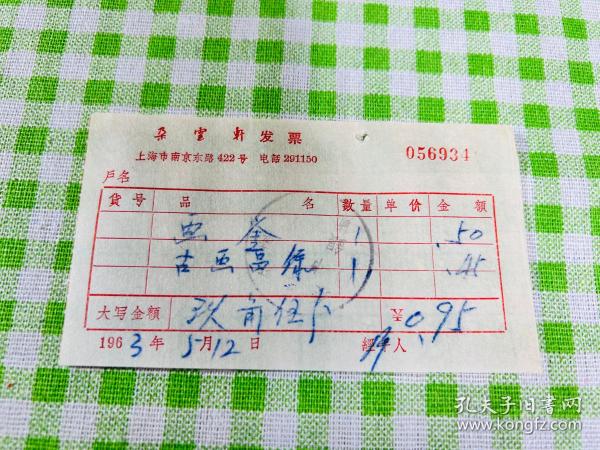 朵雲軒发票
上海市南京东路422号 电話291150
056934
戶名
貨号 品名 数量 单价 金額
画 1 .50
古画 1 .45
大写金額 玖角伍分 ¥0.95
1963年5月12日 經手人
孔夫子旧书网
www.kongfz.com